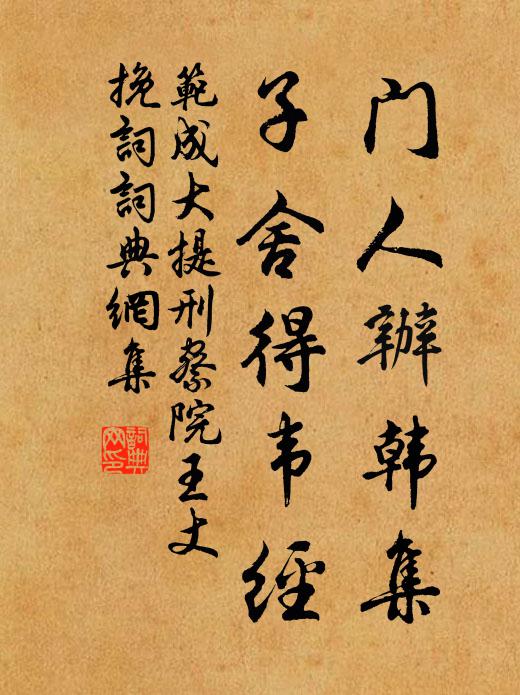 门人辦韩集
子舍得韦经
範成大提刑察院王丈
挽詞詞典網集
詞典
网印